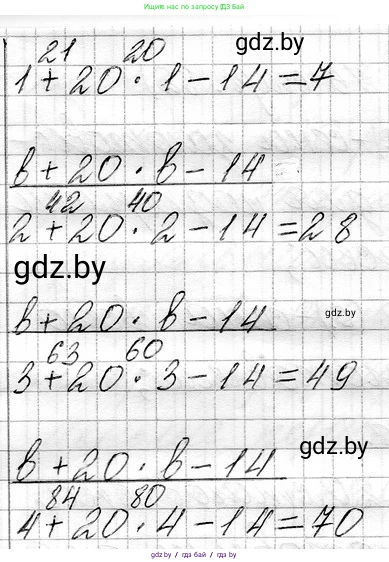 Ищите нас по запросу ГДЗ БАЙ
21 20 gdz.by
1 + 20 · 1 - 14 = 7
в + 20 · в - 14
42 40
2 + 20 · 2 - 14 = 28
gdz.by
в + 20 · в - 14 gdz.by
63 60
3 + 20 · 3 - 14 = 49
gdz.by
в + 20 · в - 14
84 80
4 + 20 · 4 - 14 = 70
gdz.by / гдз бай / гдз by